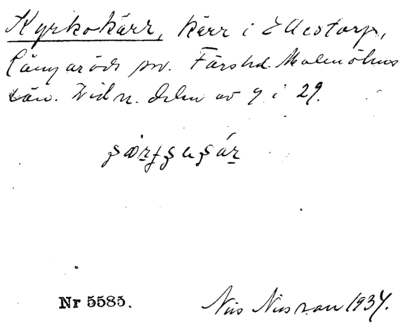 Kyrkokärr, kärr i Ellestorp,
Långaröds sn. Färs hd. Malmöhus
län. Vid n. delen av 9 i 29.
Nr 5585.
Nils Nilsson 1934.